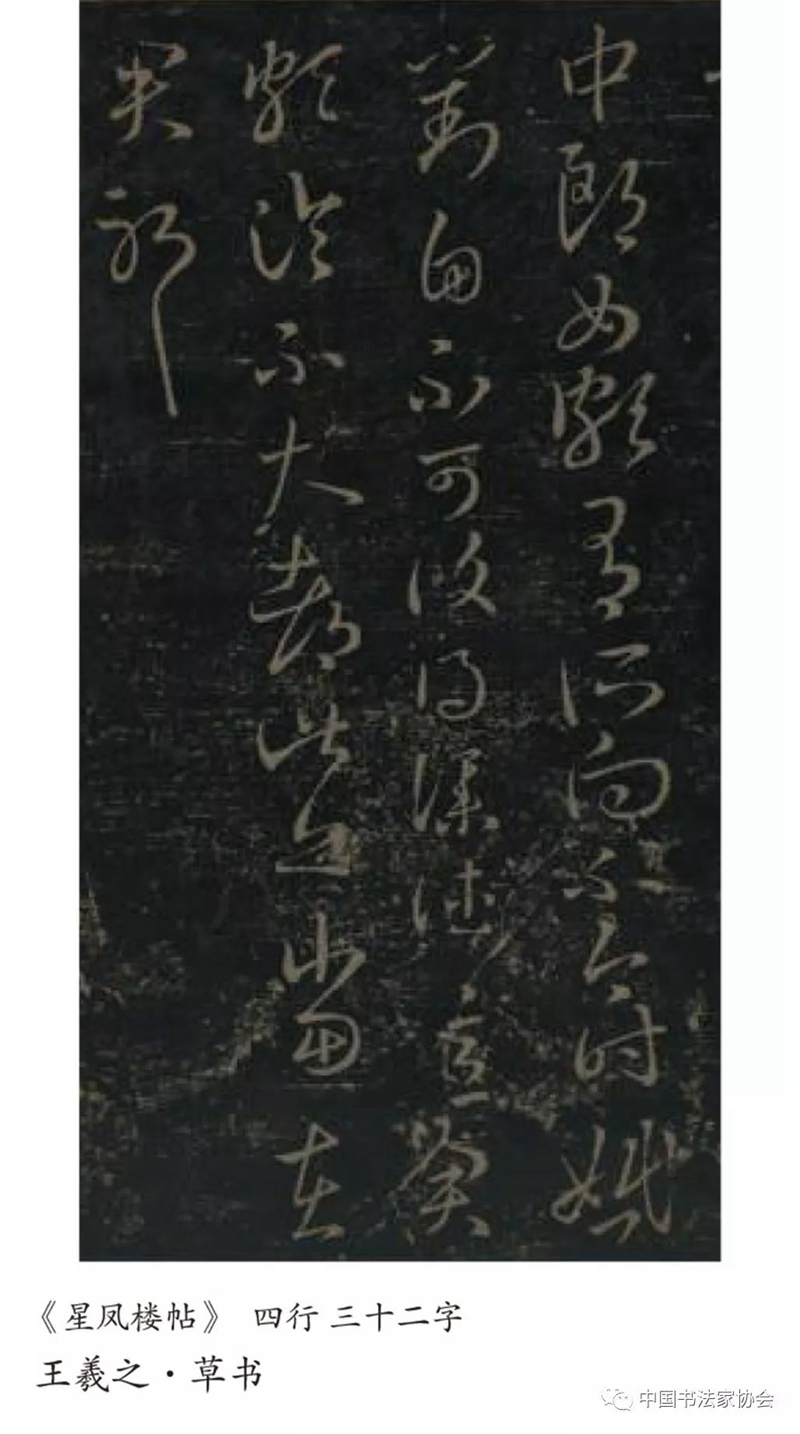 中郎女頗有所向不今時婚
對自不可復得僕往意君
頗論不大都此亦當在
君耶
《星凤楼帖》 四行 三十二字
王羲之·草书
中国书法家协会